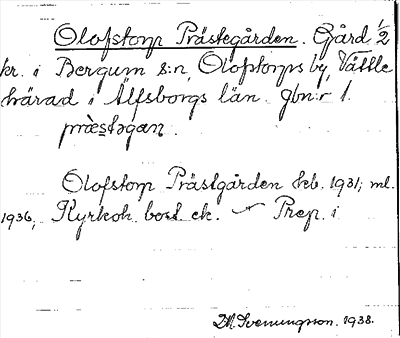 Olofstorp Prästegården. Gård 1/2
kr. i Bergum s:n, Olofstorps by, Vättle
härad i Älfsborgs län. gbn:r 1.
præstəgan.
Olofstorp Prästgården kb. 1931; ml.
1936, Kyrkoh. bost. ek. — Prep. i
D.M. Svenungsson. 1938.